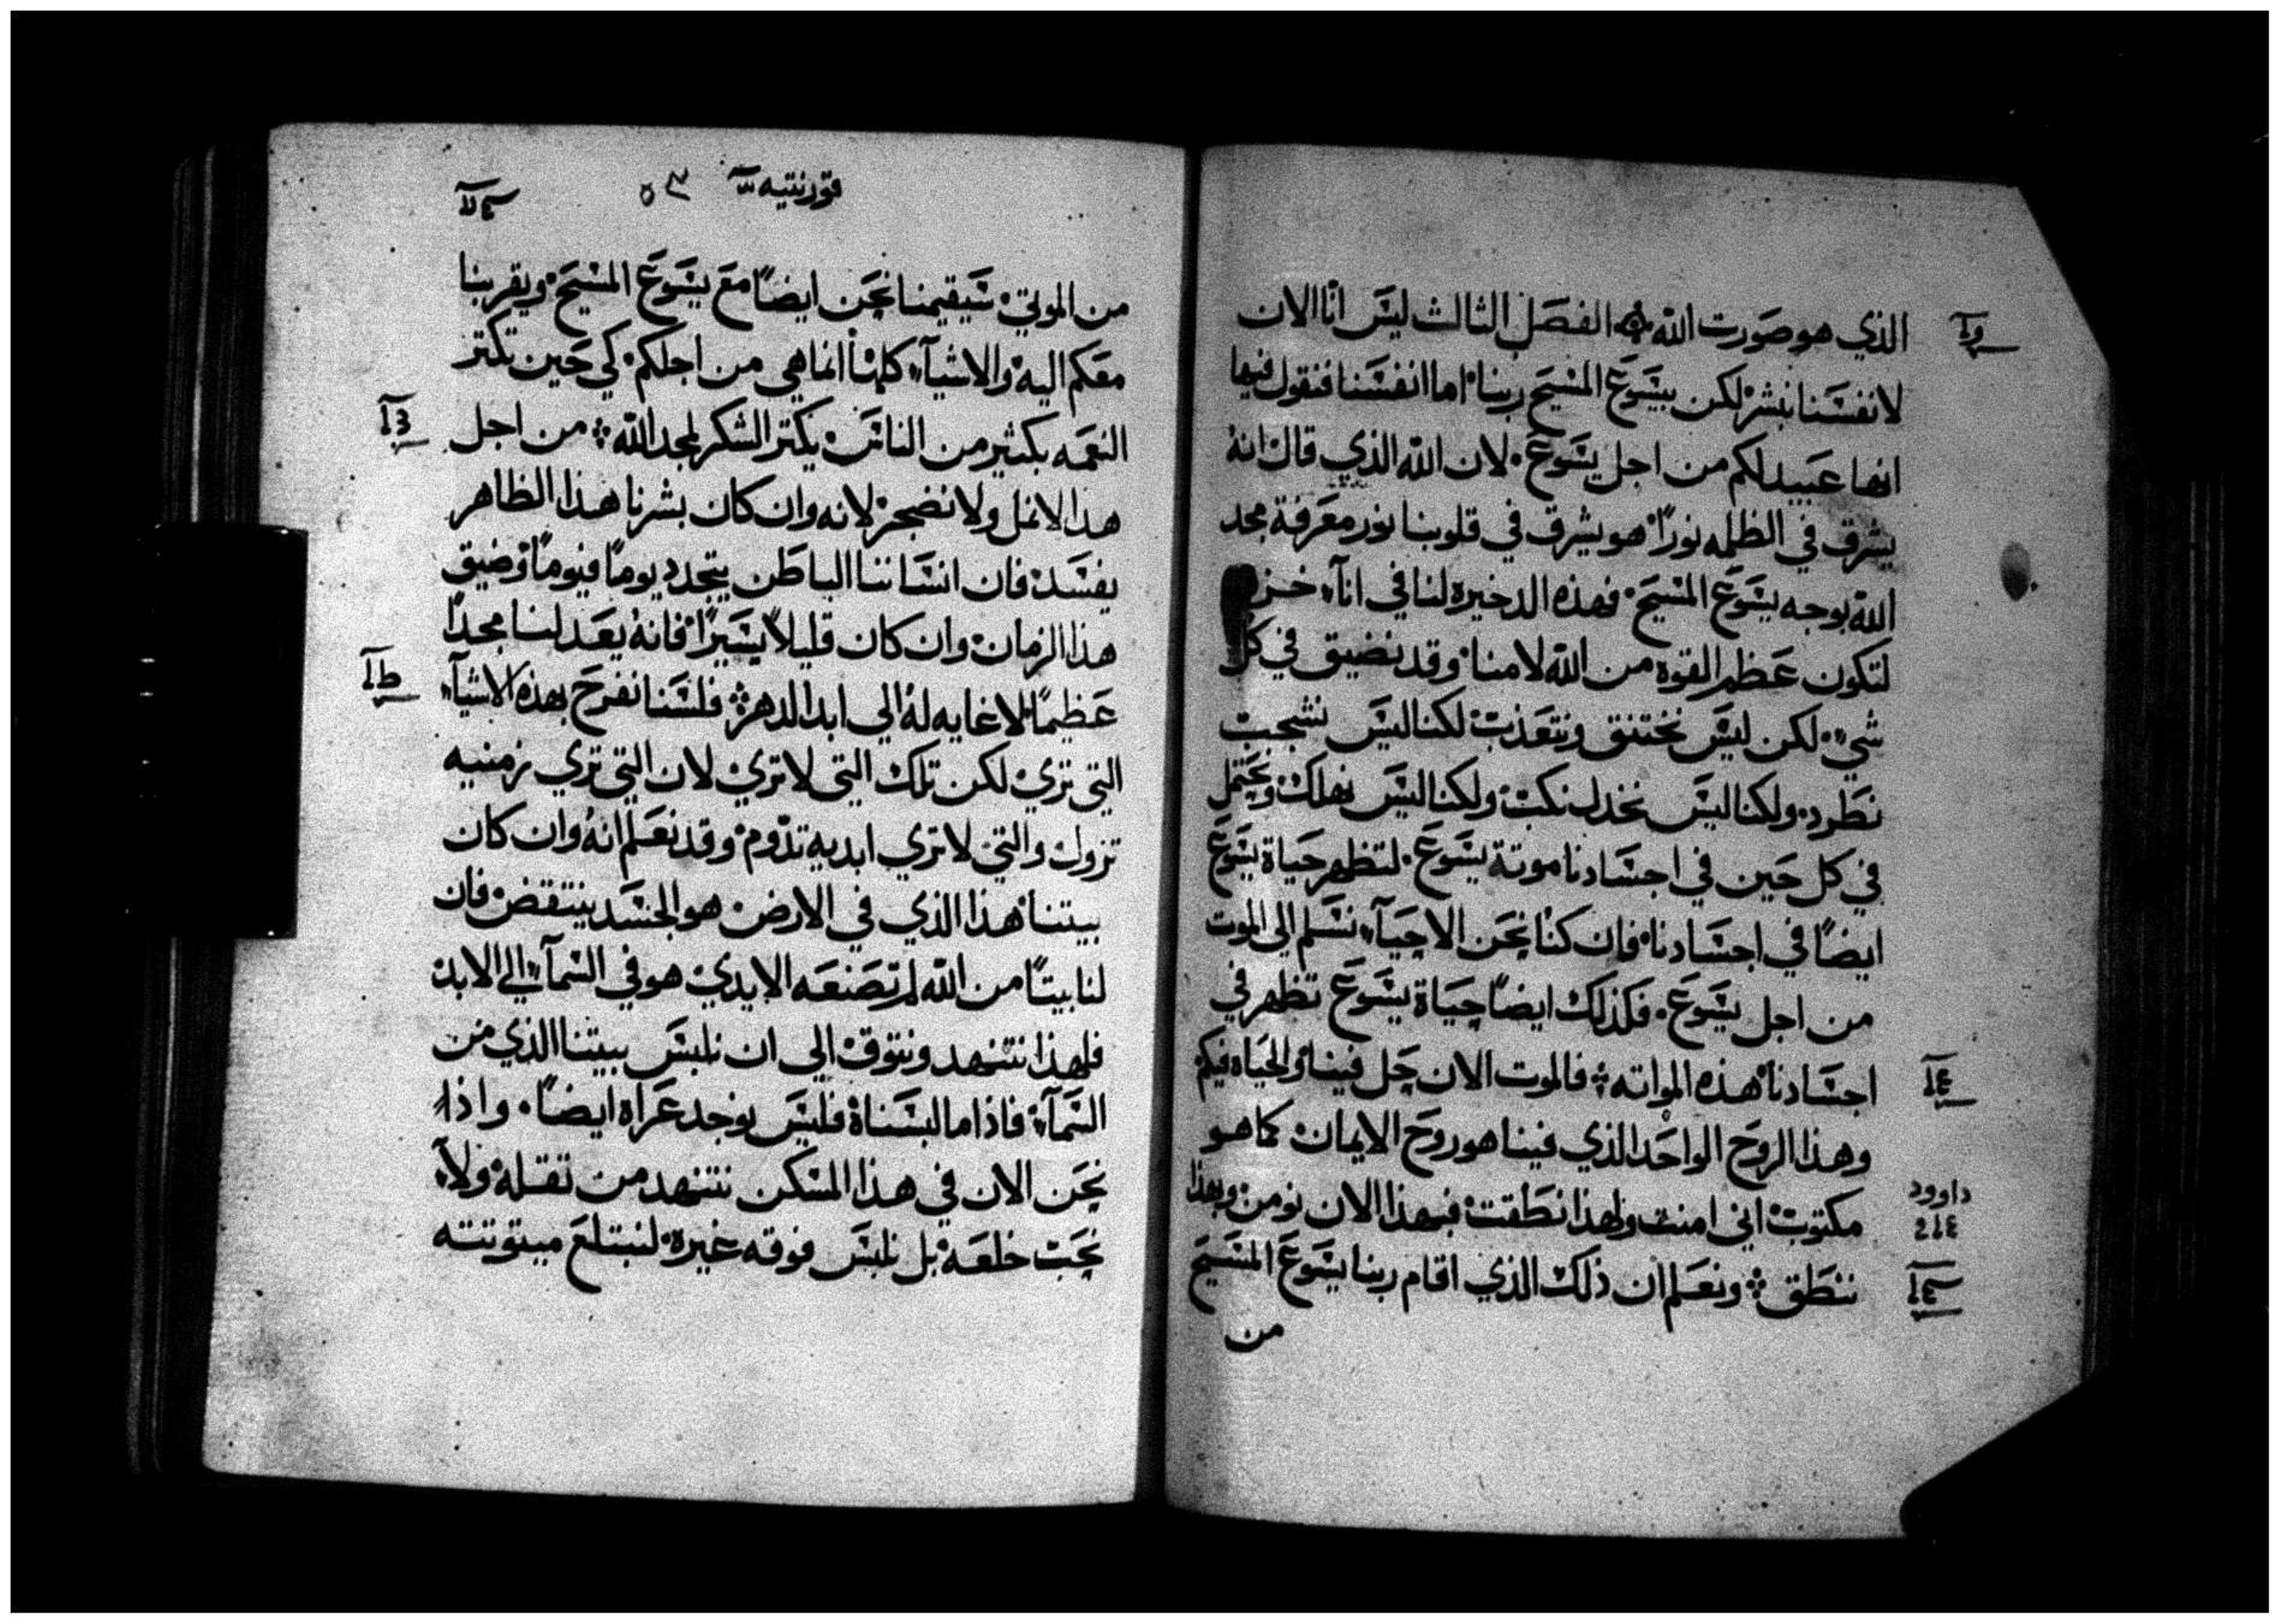 الذي هو صورت الله الفصل الثالث ليس انا الان
لانفسنا نبشر لكن بيسوع المسيح ربنا اما انفسنا فنقول فيها
انها عبيد لكم من اجل يسوع لان الله الذي قال انه
يشرق في الظلمه نورًا هو يشرق في قلوبنا نور معرفة مجد
الله بوجه يسوع المسيح فهذه الدخيره لنا في انآء خزف
لتكون عظم القوه من الله لا منا وقد نضيق في كل
شيء لكن ليس نختنق ونتعذب لكنا ليس نشجب
نطرد ولكنا ليس نخدل نكب ولكنا ليس نهلك ونحتمل
في كل حين في اجسادنا موتة يسوع لتظهر حياة يسوع
ايضًا في اجسادنا فان كنا نحن الاحيآء نسلم الي الموت
من اجل يسوع فكذلك ايضًا حياة يسوع تظهر في
اجسادنا هذه المواته فالموت الان حل فينا والحياه فيكم
وهذا الروح الواحد الذي فينا هو روح الايمان كما هو
داوود
مكتوب اني امنت ولهذا نطقت فبهذا الان نومن وبهذا
ننطق ونعلم ان ذلك الذي اقام ربنا يسوع المسيح
من
قورنتيه
٥٣
من الموتي سيقيمنا نحن ايضًا مع يسوع المسيح ويقربنا
معكم اليه والاشيآء كلها انما هي من اجلكم كي حين تكتر
النعمه بكثير من الناس يكتر الشكر لمجد الله من اجل
هذا لا نمل ولا نضجر لانه وان كان بشرنا هذا الظاهر
يفسد فان انساننا الباطن يتجدد يومًا فيومًا وضيق
هذا الزمان وان كان قليلاً يسيرًا فانه يعد لنا مجدًا
عظيمًا لا غايه له الي ابد الدهر فلسنا نفرح بهذه الاشيآء
التي تري لكن تلك التي لا تري لان التي تري زمنيه
تزول والتي لا تري ابديه تدوم وقد نعلم انه وان كان
بيتنا هذا الذي في الارض هو الجسد ينتقض فان
لنا بيتًا من الله لم تصنعه الايدي هو في السمآء الي الابد
فلهذا نتنهد ونتوق الي ان نلبس بيتنا الذي من
السمآء فاذا ما البسناه فليس نوجد عراه ايضًا واذا
نحن الان في هذا المسكن نتنهد من تقله ولا
نحب خلعه بل نلبس فوقه غيره لنبتلع ميتوتته